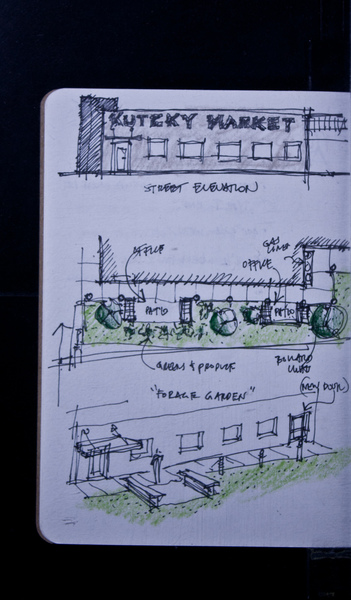 KUTEKY MARKET
STREET ELEVATION
GAS LAMP
OFFICE
OFFICE
PATIO
PATIO
GREENS & PRODUCE
BOLLARD LIGHT
"FORAGE GARDEN"
(NEW DOOR)